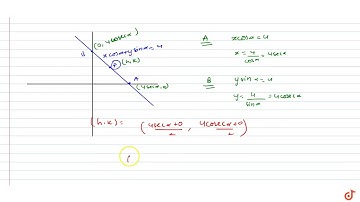 (0, 4cosecα)
B
xcosα+ysinα=4
P
(h,k)
A
(4secα,0)
A xcosα=4
x=4/cosα=4secα
B ysinα=4
y=4/sinα=4cosecα
(h,k) = (4secα+0/2, 4cosecα+0/2)
(